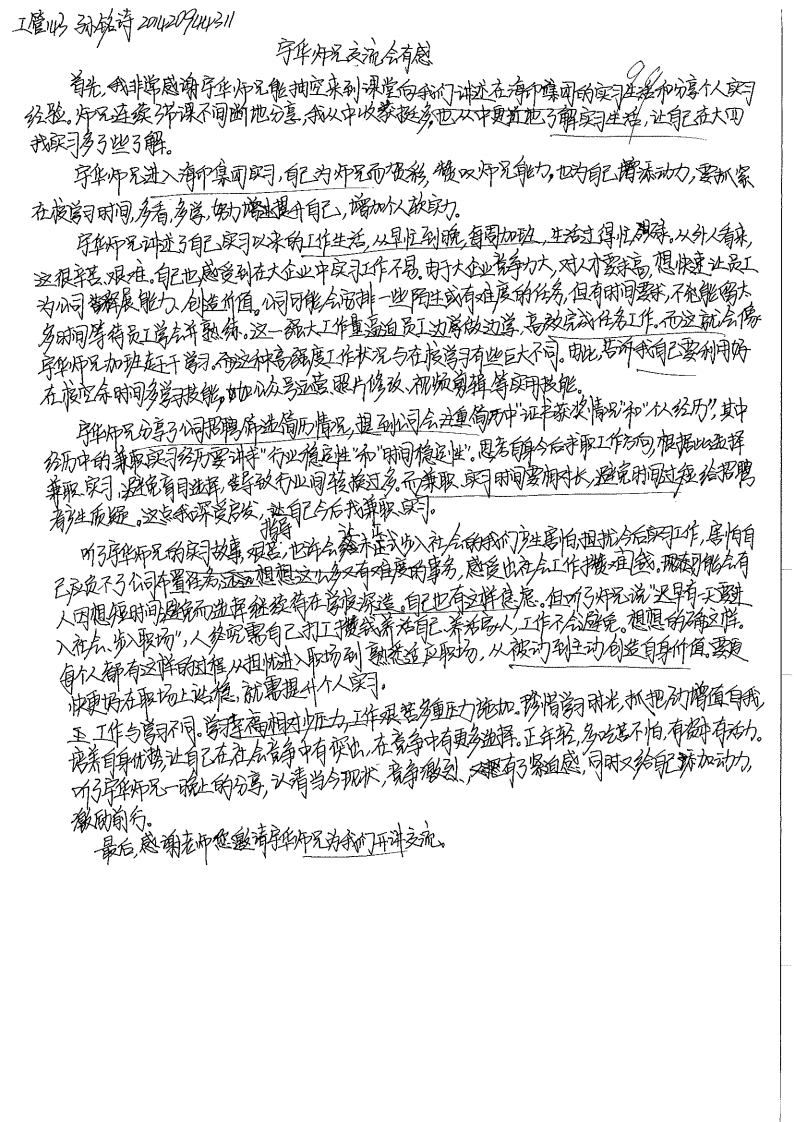 工管143 孙铭诗 201420944311
宇华师兄交流会有感
首先,我非常感谢宇华师兄能抽空来到课堂向我们讲述在海印集团的实习生活和分享个人实习
经验。师兄连续3节课不间断地分享,我从中收获挺多,也从中更近地了解实习生活,让自己在大四
找实习多了些了解。
宇华师兄进入海印集团实习,自己为师兄而喝彩,赞叹师兄能力,也为自己增添动力,要抓紧
在校学习时间,多看,多学,努力提升自己,增加个人软实力。
宇华师兄讲述了自己实习以来的工作生活,从早忙到晚,每周加班,生活过得忙碌。从外人看来,
这很辛苦、艰难。自己也感受到在大企业中实习工作不易。由于大企业竞争力大,对人才要求高,想快速让员工
为公司发展能力、创造价值。公司可能会安排一些陌生或有难度的任务,但有时间要求,不能能隔太
多时间等待员工学会并熟练。这一强大工作量逼迫员工边学做边学,高效完成任务工作。而这就会像
宇华师兄加班赶干学习。而这种高强度工作状况与在校学习有些巨大不同。因此,告诉我自己要利用好
在校空余时间多学习技能,如公众号运营、照片修改、视频剪辑等实用技能。
宇华师兄分享了公司招聘筛选简历情况,提到公司会注重简历中“证书获奖情况”和“个人经历”,其中
经历中的兼职实习经历要讲求“行业稳定性”和“时间稳定性”。思考自身今后求职工作方向,根据此选择
兼职、实习,避免盲目选择,导致行业间转换过多。而兼职、实习时间要相对长,避免时间过短给招聘
者产生质疑。这点我深受启发,指导让自己今后找兼职、实习。
听了宇华师兄的实习故事,艰苦,也许会让未正式步入社会的我们产生害怕、担忧今后实习工作,害怕自
己应负不了公司布置任务,想想这么多又有难度的事务,感受出社会工作攒难钱。现在可能会有
人因想短时间避免而选择继续待在学校深造。自己也有这样焦虑。但听了师兄说“迟早有一天要进
入社会、步入职场”,人终究需自己打工攒钱养活自己、养活家人,工作不会避免。想想的确这样。
每个人都有这样的过程,从担忧进入职场到熟悉适应职场,从被动到主动创造自身价值。要更
快更好在职场上站稳,就需提升个人实习。
工作与学习不同。学习相对少压力,工作艰苦多重压力施加。珍惜学习时光,抓把劲增值自我,
培养自身优势,让自己在社会竞争中有突出,在竞争中有更多选择。正年轻,多吃苦不怕,有奋斗有活力。
听了宇华师兄一晚上的分享,认清当今现状,竞争激烈,又有了紧迫感,同时又给自己添加动力,
激励前行。
最后,感谢老师您邀请宇华师兄为我们开讲交流。